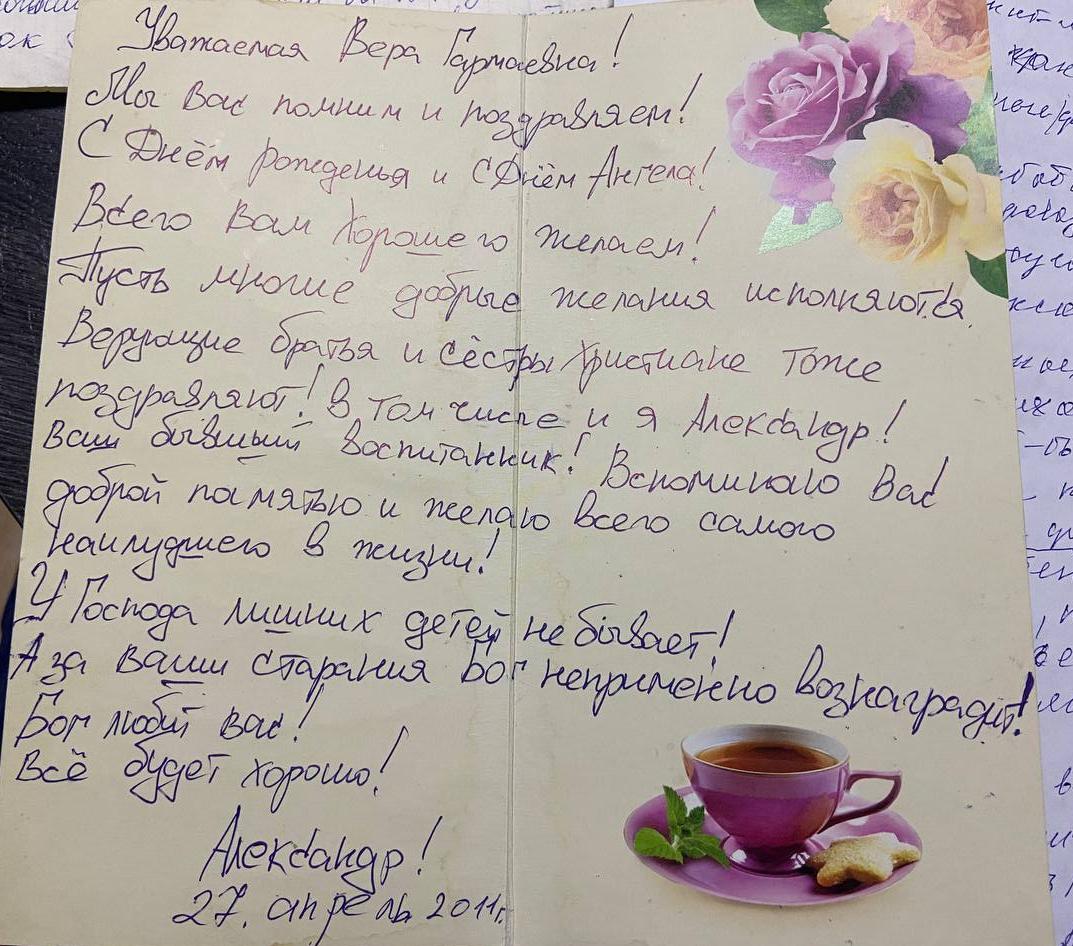 Уважаемая Вера Гармаевна!
Мы вас помним и поздравляем!
С Днём рожденья и с Днём Ангела!
Всего вам хорошего желаем!
Пусть многие добрые желания исполняются.
Верующие братья и сёстры Христиане тоже
поздравляют! в том числе и я Александр!
ваш бывший воспитанник! Вспоминаю Вас
доброй памятью и желаю всего самого
наилудшего в жизни!
У Господа лишних детей не бывает!
А за ваши старания Бог неприменно вознаградит!
Бог любит вас!
Всё будет хорошо!
Александр!
27. апрель 2011г.